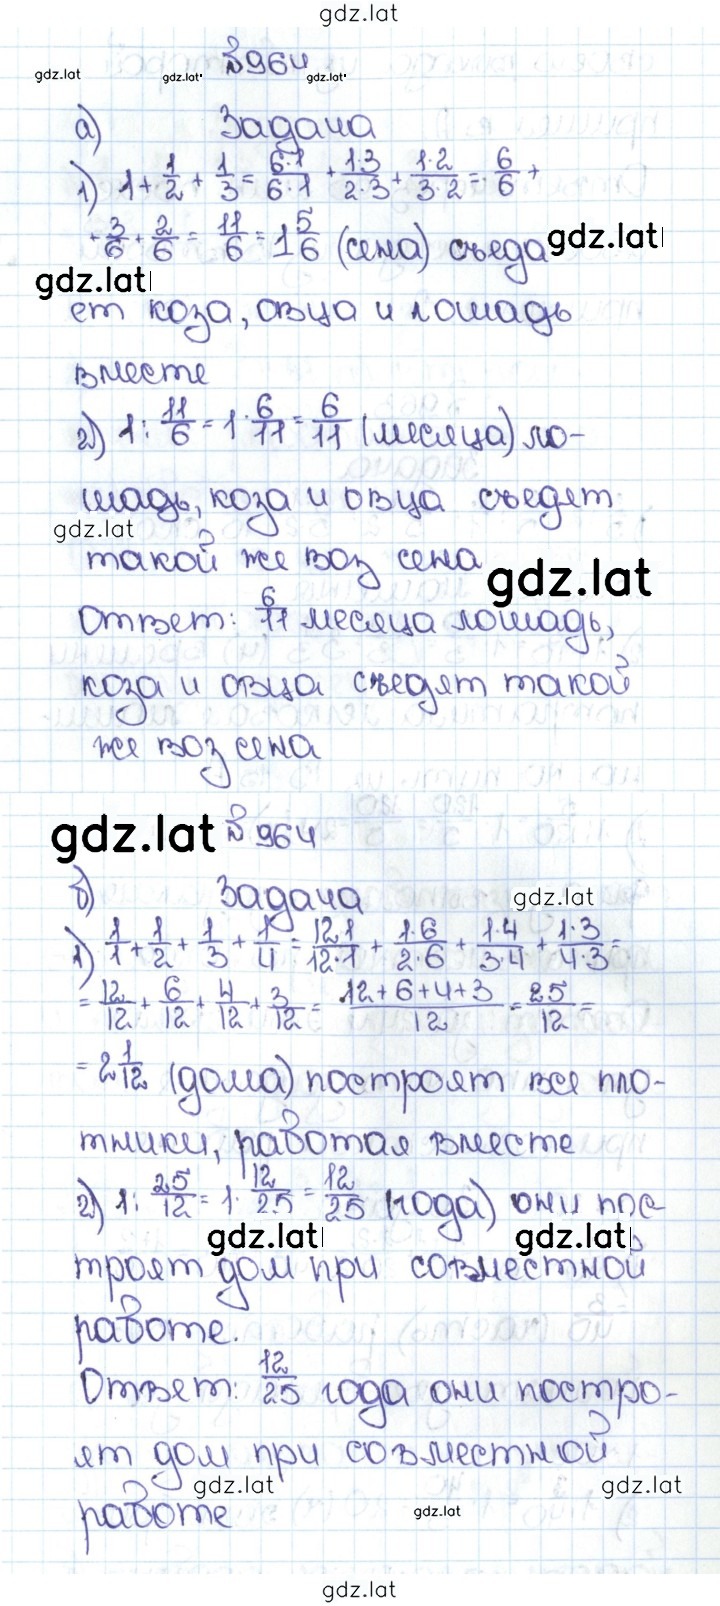 gdz.lat
№964
gdz.lat gdz.lat gdz.lat
а) Задача
1) 1 + 1/2 + 1/3 = 6·1/6·1 + 1·3/2·3 + 1·2/3·2 = 6/6 +
+ 3/6 + 2/6 = 11/6 = 1 5/6 (сена) съеда
gdz.lat
gdz.lat
ет коза, овца и лошадь
вместе
2) 1 : 11/6 = 1 · 6/11 = 6/11 (месяца) ло-
шадь, коза и овца съедят
gdz.lat
такой же воз сена
gdz.lat
Ответ: 6/11 месяца лошадь,
коза и овца съедят такой
же воз сена
gdz.lat №964
б) Задача gdz.lat
1) 1/1 + 1/2 + 1/3 + 1/4 = 12·1/12·1 + 1·6/2·6 + 1·4/3·4 + 1·3/4·3 =
= 12/12 + 6/12 + 4/12 + 3/12 = 12+6+4+3/12 = 25/12 =
= 2 1/12 (дома) построят все пло-
тники, работая вместе
2) 1 : 25/12 = 1 · 12/25 = 12/25 (года) они пос-
gdz.lat gdz.lat
троят дом при совместной
работе.
Ответ: 12/25 года они постро-
ят дом при совместной
gdz.lat gdz.lat
работе gdz.lat
gdz.lat